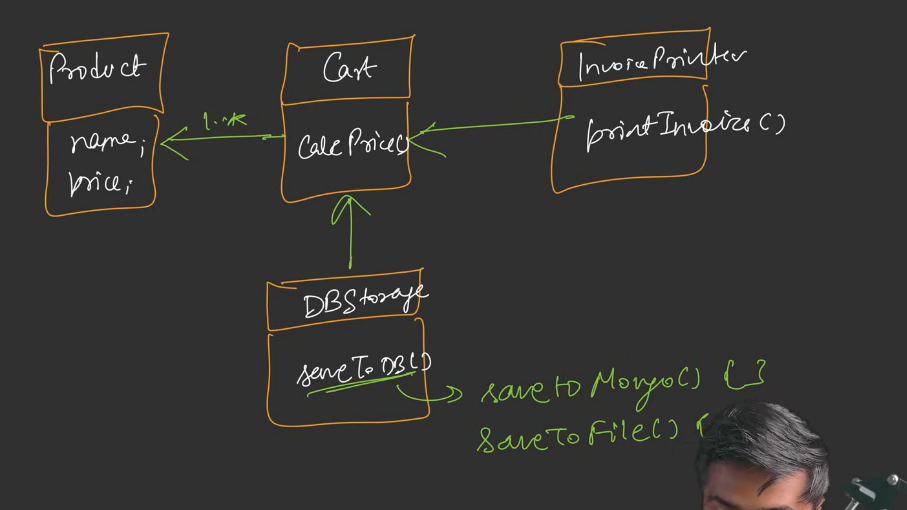 Product
name;
price;
1..*
Cart
calcPrice()
InvoicePrinter
printInvoice()
DBStorage
saveToDB()
savetoMongo() { }
SaveToFile() {